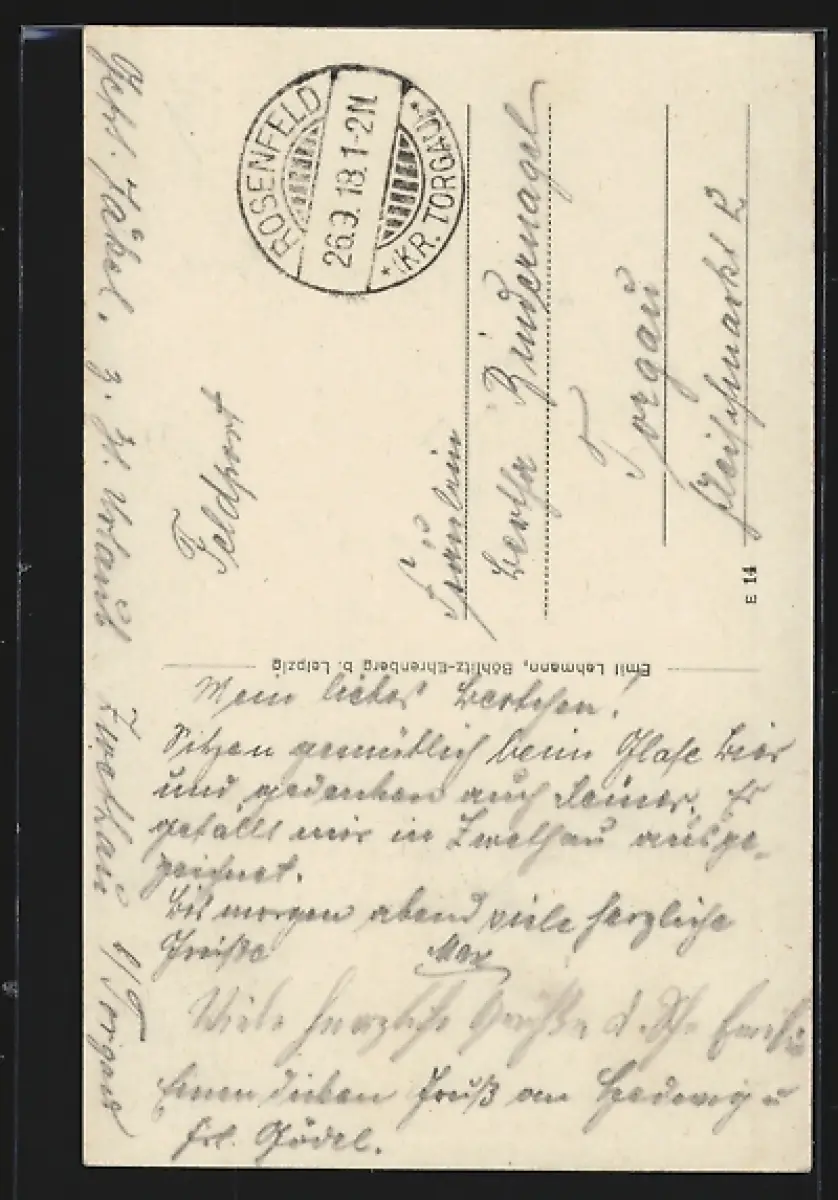 ROSENFELD
26.9.18.1-2N.
* (KR. TORGAU) *
Feldpost
Fräulein
Bertha Rindernagel
Torgau
Fleischmarkt 2
E 14
Emil Lehmann, Böhlitz-Ehrenberg b. Leipzig
Mein liebes Bertchen!
Sitzen gemütlich beim Glase Bier
und gedenken auch Deiner. Es
gefällt mir in Zwethau ausge-
zeichnet.
Bis morgen abend viele herzliche
Grüße Max
Viele herzliche Grüße
Einen dicken Gruß an Hedwig u
Frl. Gödel.
Jäkel, z. Zt. Urlaub Zwethau b/Torgau